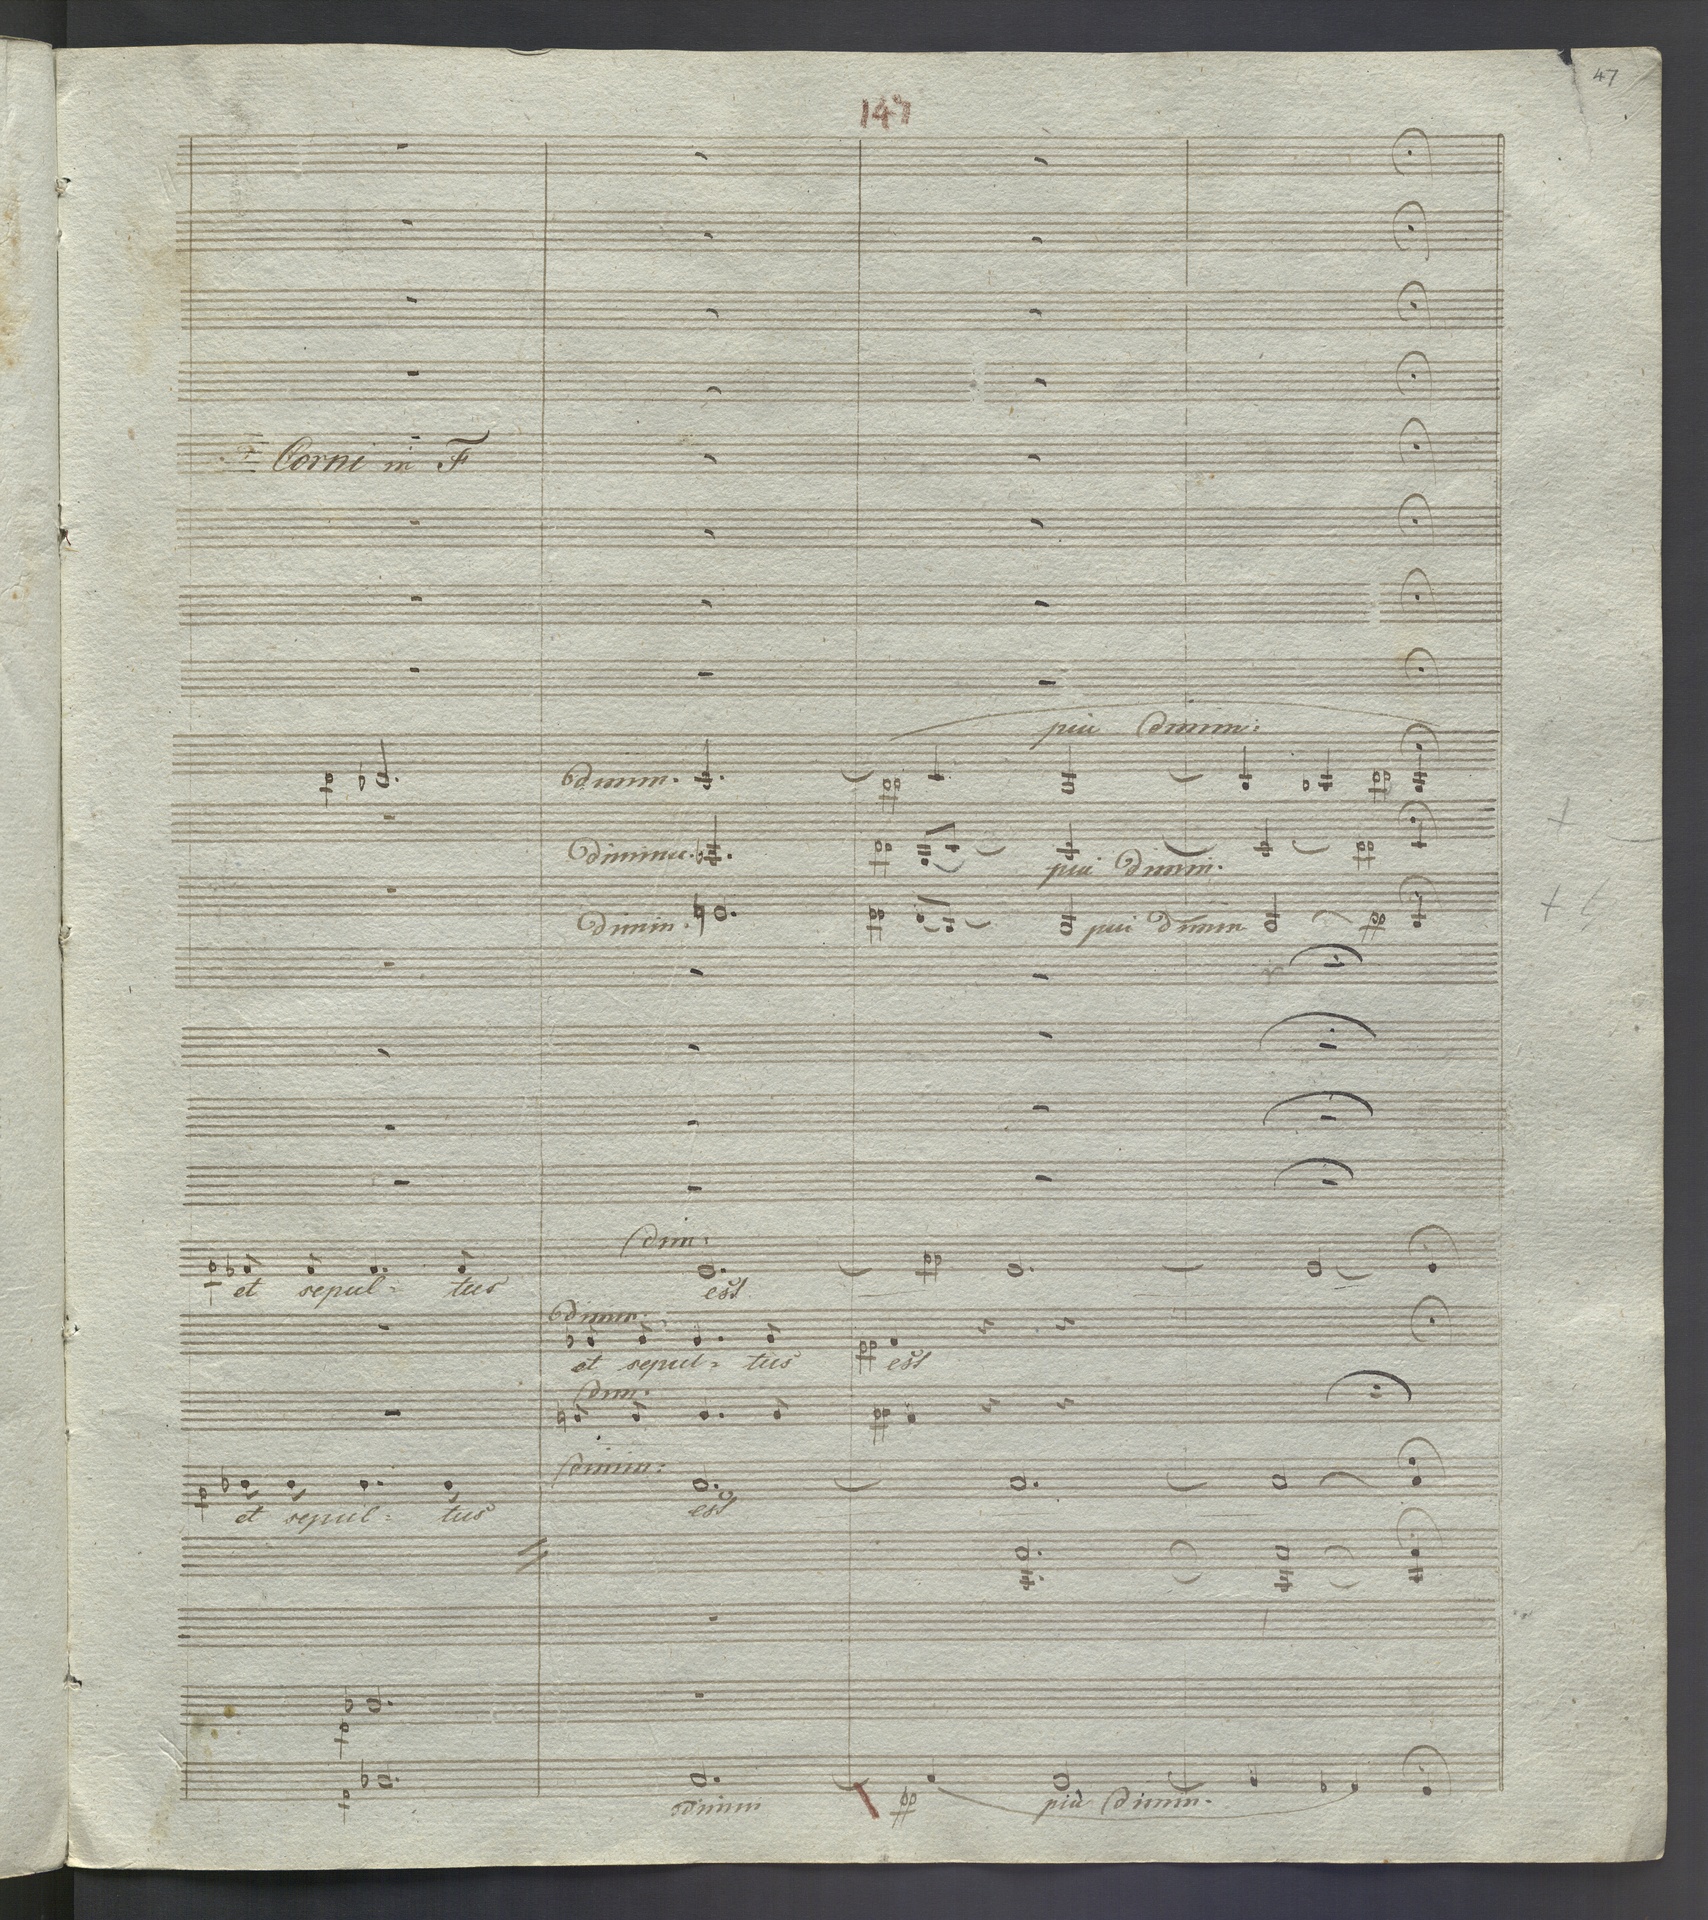 47
147
Corni in F
più dimin:
p dimin. pp
diminu. pp
più dimin.
dimin. pp più dimin pp
dim:
p pp
et sepul- tus est
dimin:
et sepul- tus pp est
dim:
pp
dimin:
p
et sepul- tus est
p
p dimin pp più dimin.